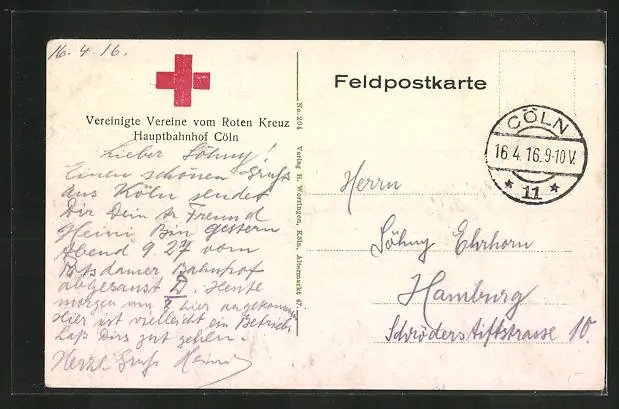 16.4.16.
Vereinigte Vereine vom Roten Kreuz
Hauptbahnhof Cöln
Lieber Söhny!
Einen schönen Gruß
aus Köln sendet
Dir Dein Freund
Heini. Bin gestern
Abend 9.27 vom
Potsdamer Bahnhof
abgesaust D. Heute
morgen um 8 hier angekommen
Hier ist vielleicht ein Betrieb
Laß Dirs gut gehen.
Herzl. Gruß Heini
No. 204 Verlag H. Worringen, Köln, Altermarkt 47.
Feldpostkarte
CÖLN
16.4.16.9-10V.
* 11 *
Herrn
Söhny Ehrhorn
Hamburg
Schröderstiftstrasse 10.